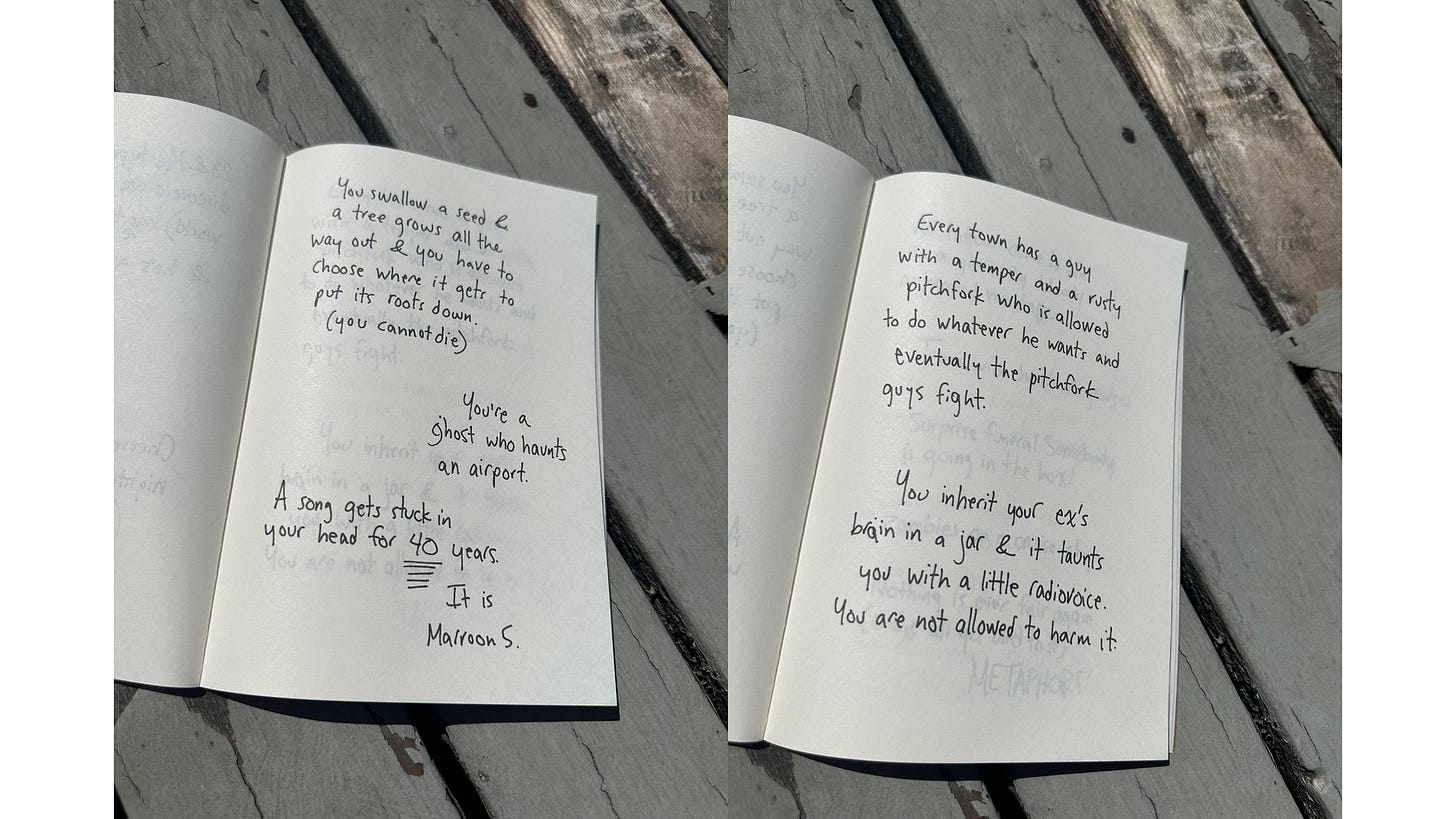 You swallow a seed &
a tree grows all the
way out & you have to
choose where it gets to
put its roots down.
(you cannot die)
You're a
ghost who haunts
an airport.
A song gets stuck in
your head for 40 years.
It is
Marroon 5.
Every town has a guy
with a temper and a rusty
pitchfork who is allowed
to do whatever he wants and
eventually the pitchfork
guys fight.
Surprise funeral! Somebody
is going in the box!
You inherit your ex's
brain in a jar & it taunts
you with a little radiovoice.
Nothing is ever fair again
You are not allowed to harm it.
METAPHORS